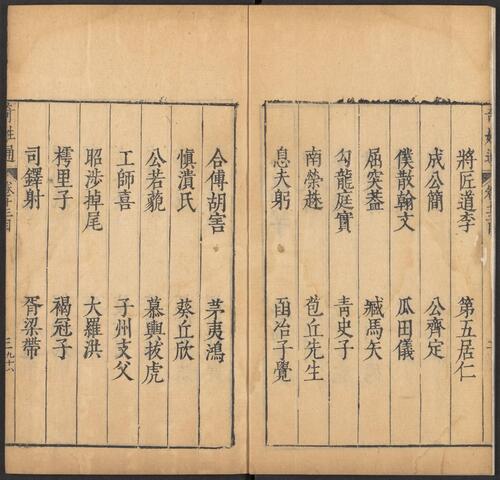 將匠道李 第五居仁
成公簡 公齊定
僕散翰文 瓜田儀
屈突蓋 臧馬矢
勾龍庭實 青史子
南榮趎 苞丘先生
息夫躬 函冶子覺
合傅胡害 茅夷鴻
慎潰氏 葵丘欣
公若藐 慕輿拔虎
工師喜 子州支父
昭涉掉尾 大羅洪
樗里子 褐冠子
司鐸射 胥梁帶
奇姓通